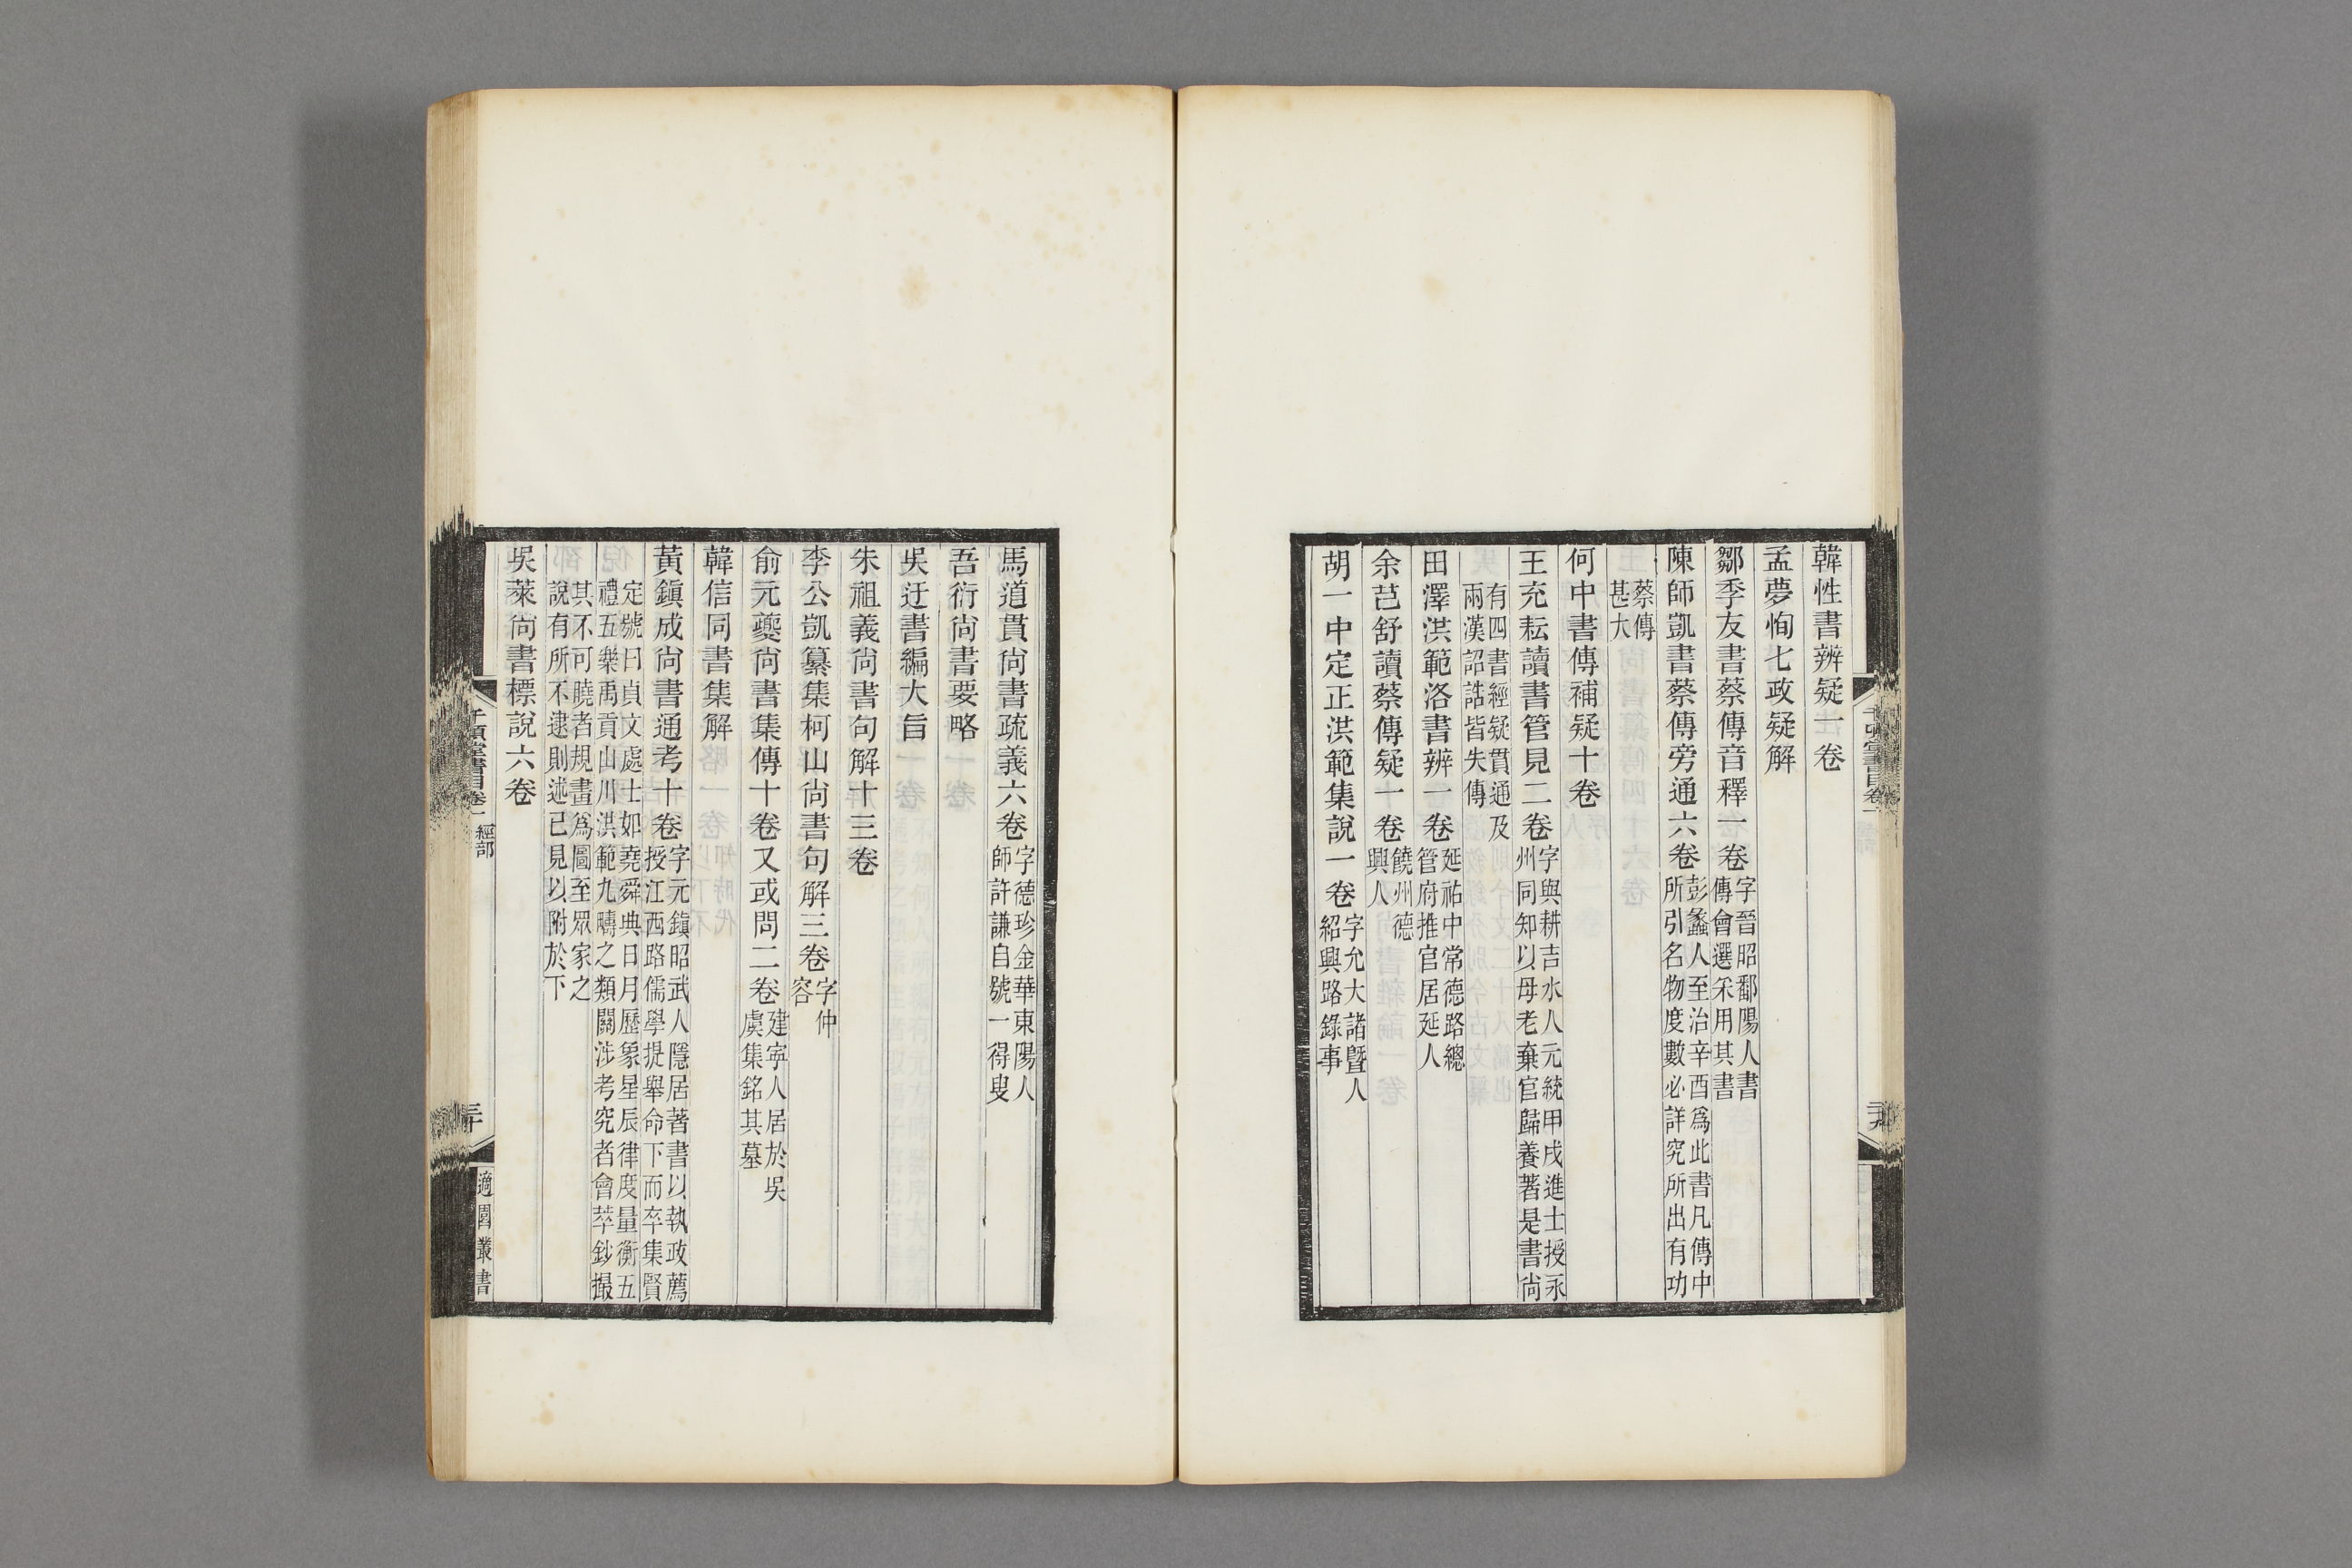 韓性書辨疑一卷
孟夢恂七政疑解
鄒季友書蔡傳音釋一卷字晉昭鄱陽人書
傳會選采用其書
陳師凱書蔡傳旁通六卷彭蠡人至治辛酉爲此書凡傳中
所引名物度數必詳究所出有功
蔡傳
甚大
何中書傳補疑十卷
王充耘讀書管見二卷字與耕吉水人元統甲戌進士授永
州同知以母老棄官歸養著是書尚
有四書經疑貫通及
兩漢詔誥皆失傳
田澤洪範洛書辨一卷延祐中常德路總
管府推官居延人
余芑舒讀蔡傳疑一卷饒州德
興人
胡一中定正洪範集說一卷字允大諸曁人
紹興路錄事
馬道貫尚書疏義六卷字德珍金華東陽人
師許謙自號一得叟
吾衍尚書要略
吳迂書編大旨
朱祖義尚書句解十三卷
李公凱纂集柯山尚書句解三卷字仲
容
俞元夔尚書集傳十卷又或問二卷建寧人居於吳
虞集銘其墓
韓信同書集解
黃鎭成尚書通考十卷字元鎭昭武人隱居著書以執政薦
授江西路儒學提舉命下而卒集賢
定號曰貞文處士如堯舜典日月歷象星辰律度量衡五
禮五樂禹貢山川洪範九疇之類關涉考究者會萃鈔撮
其不可曉者規畫爲圖至眾家之
說有所不逮則述己見以附於下
吳萊尚書標說六卷
千頃堂書目卷一 經部
三十
適園叢書